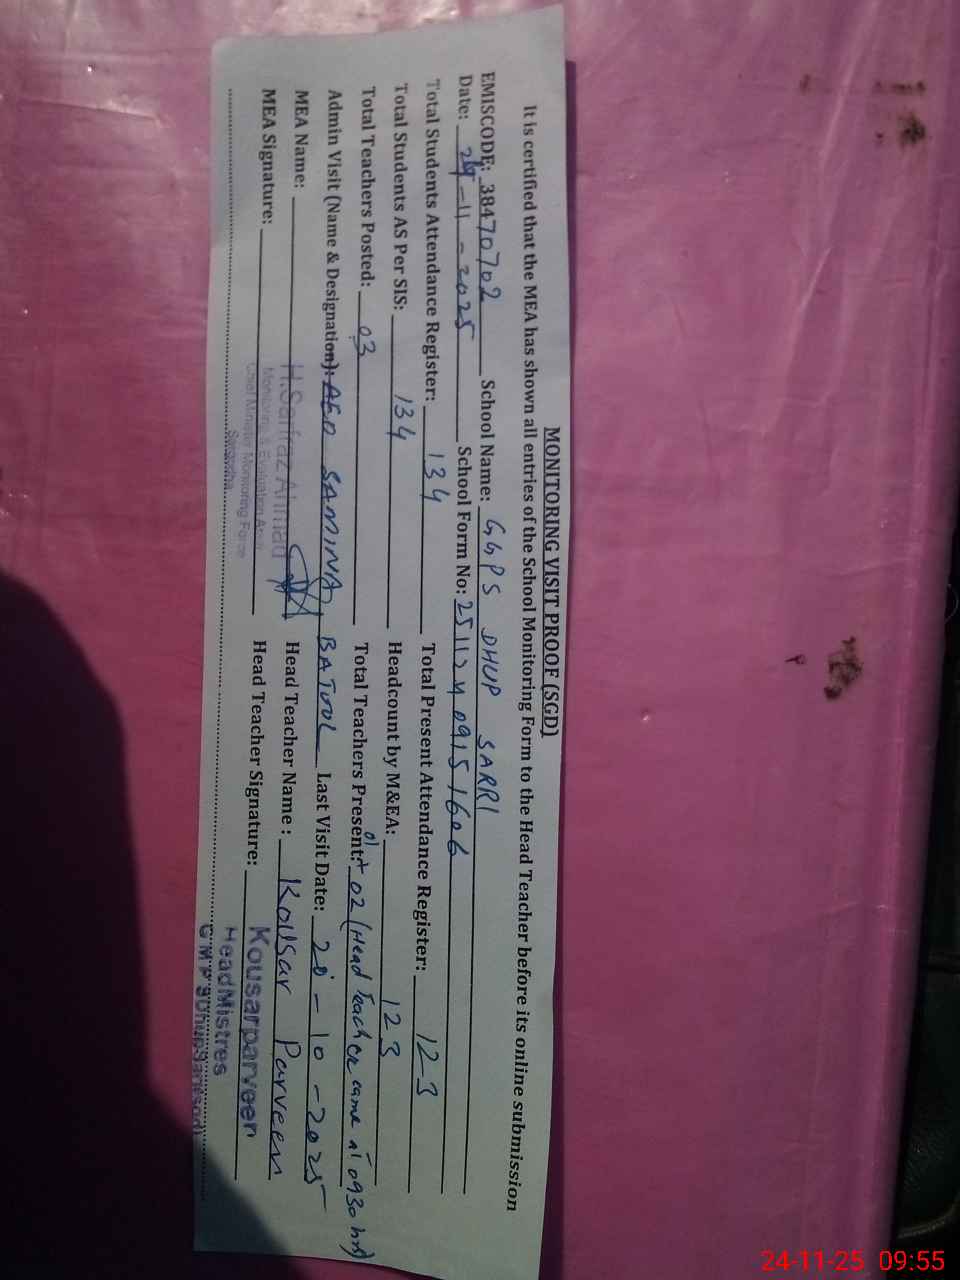 MONITORING VISIT PROOF (SGD)
It is certified that the MEA has shown all entries of the School Monitoring Form to the Head Teacher before its online submission
EMISCODE: 38470702 School Name: GGPS DHUP SARRI
Date: 24-11-2025 School Form No: 251124 0915 1606
Total Students Attendance Register: 134 Total Present Attendance Register: 123
Total Students AS Per SIS: 134 Headcount by M&EA: 123
Total Teachers Posted: 03 Total Teachers Present: 01+02 (Head Teacher came at 0930 hrs)
Admin Visit (Name & Designation): AEO SAMINA BATOOL Last Visit Date: 20-10-2025
MEA Name: H.Sarfraz Ahmad Head Teacher Name : Kousar Parveen
Monitoring & Evaluation
MEA Signature: Head Teacher Signature: Kousarparveen
Chief Minister Monitoring Force
Sargodha
HeadMistres
24-11-25 09:55